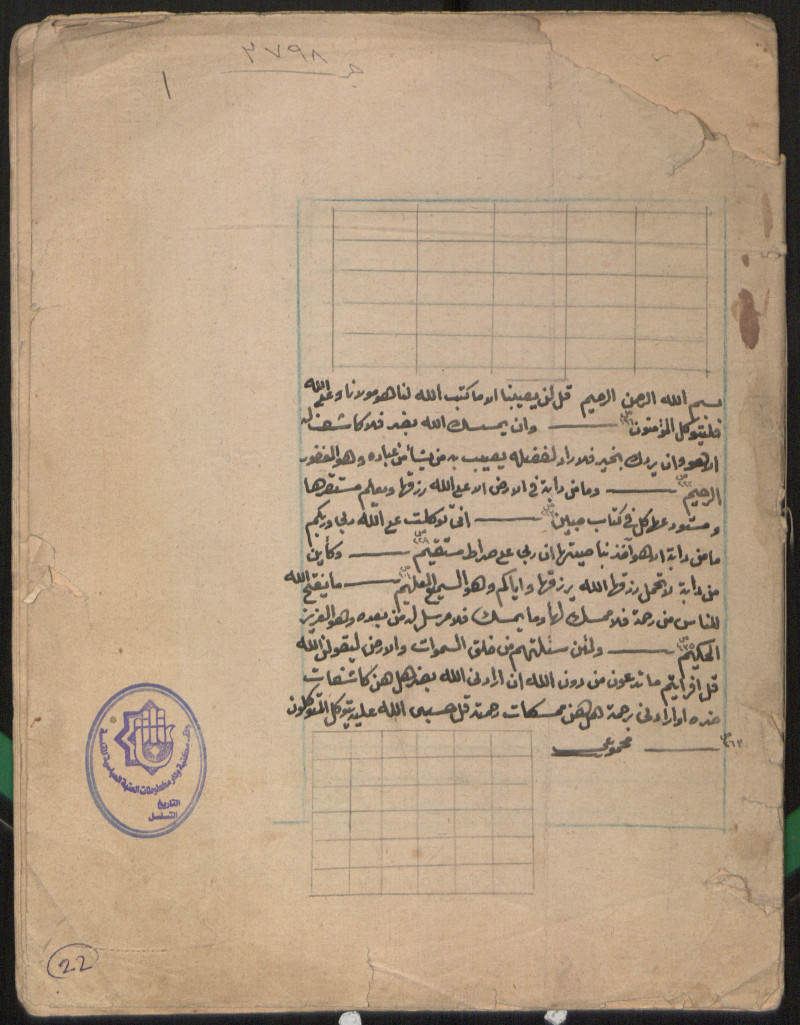 ٢٧٩٨
١
بسم الله الرحمن الرحيم قل لن يصيبنا الا ما كتب الله لنا هو مولانا وعلى الله
فليتوكل المؤمنون وان يمسسك الله بضر فلا كاشف له
الا هو وان يردك بخير فلا راد لفضله يصيب به من يشأ من عباده وهو الغفور
الرحيم وما من دابة في الارض الا على الله رزقها ويعلم مستقرها
و مستودعها كل في كتاب مبين انى توكلت على الله ربى وربكم
ما من دابة الا هو آخذ بناصيتها ان ربى على صراط مستقيم وكأين
من دابة لا تحمل رزقها الله يرزقها واياكم وهو السميع العليم ما يفتح الله
للناس من رحمة فلا ممسك لها وما يمسك فلا مرسل له من بعده وهو العزيز
الحكيم ولئن سئلتهم من خلق السموات والارض ليقولن الله
قل افرايتم ما تدعون من دون الله ان ارادنى الله بضر هل هن كاشفات
ضره او ارادنى برحمة هل هن ممسكات رحمته قل حسبى الله عليه يتوكل المتوكلون
التاريخ
التسلسل
22